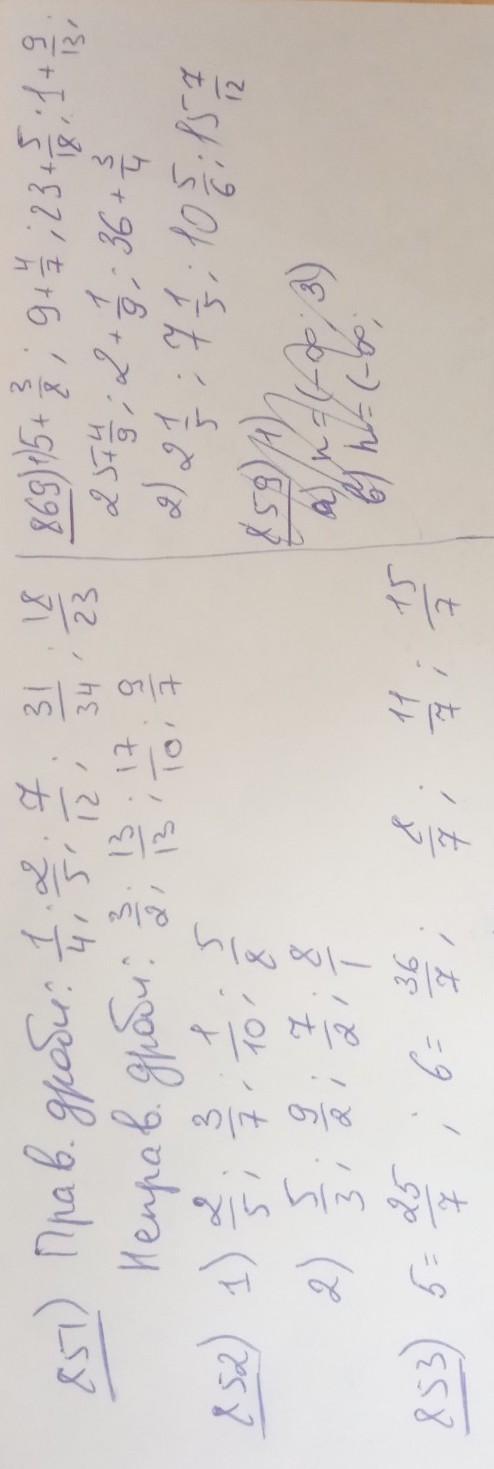 851) Прав. дроби: 1/4; 2/5; 7/12; 31/34; 18/23
Неправ. дроби: 3/2; 13/13; 17/10; 9/7
852) 1) 2/5; 3/7; 1/10; 5/8
2) 5/3; 9/2; 7/2; 8/1
853) 5 = 25/7; 6 = 36/7; 8/7; 11/7; 15/7
869) 1) 5 + 3/8; 9 + 4/7; 23 + 5/18; 1 + 9/13;
25 + 4/9; 2 + 1/9; 36 + 3/4
2) 2 1/5; 7 1/5; 10 5/6; 15 7/12
859) 1)
а) n = (-∞; 3)
в) n = (-∞;